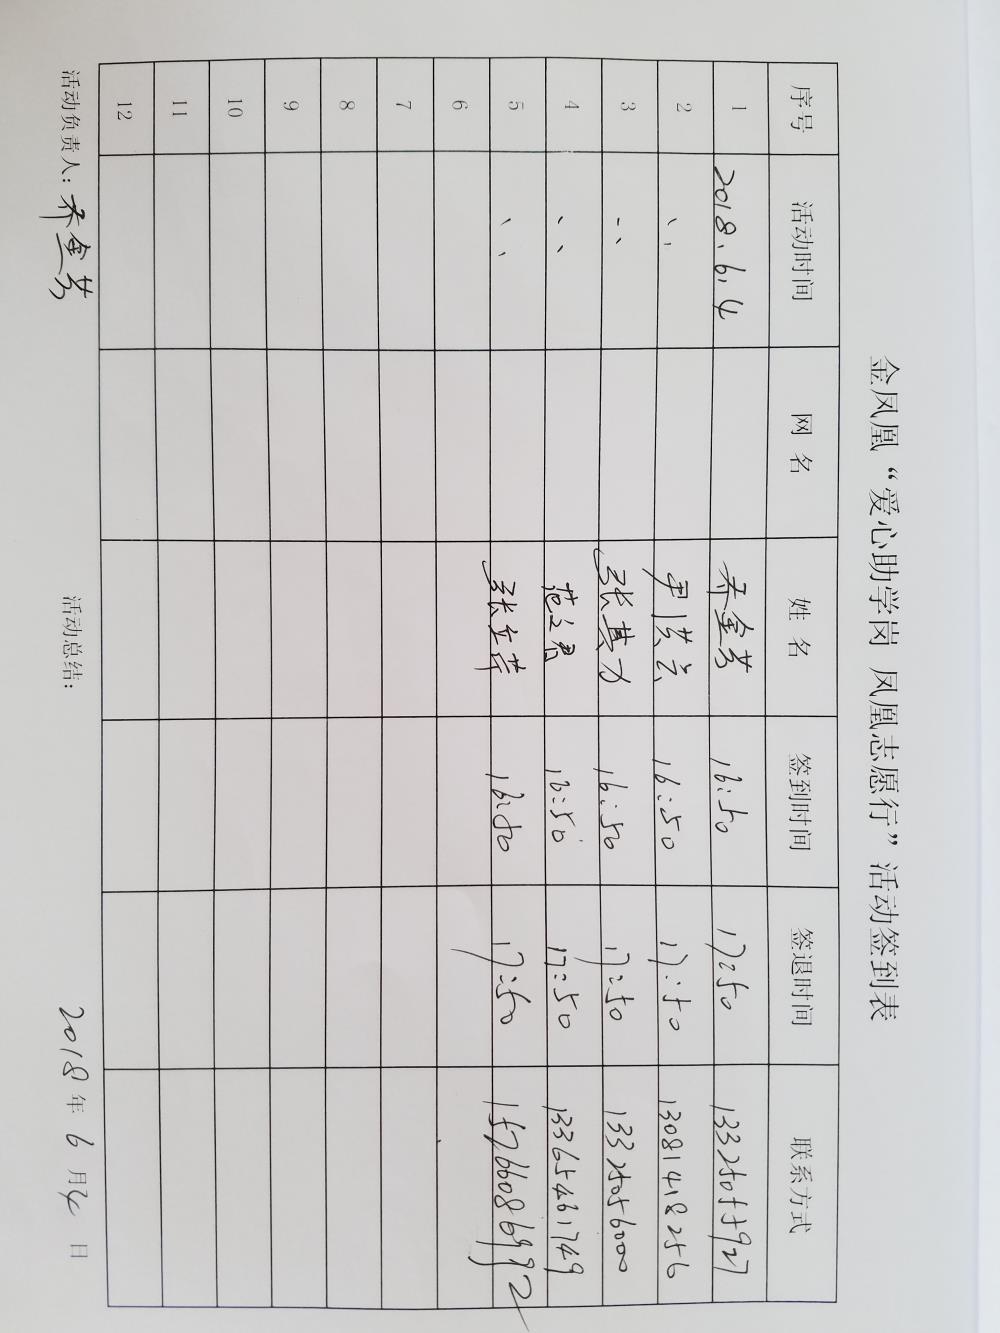 金凤凰“爱心助学岗 凤凰志愿行”活动签到表
序号 活动时间 网 名 姓 名 签到时间 签退时间 联系方式
1 2018.6.4 乔金芳 16:50 17:50 13325055927
2 〃 尹洪云 16:50 17:50 13081418256
3 〃 张其力 16:50 17:50 13325056000
4 〃 范立君 16:50 17:50 13365461749
5 〃 张立萍 16:50 17:50 15766086992
6
7
8
9
10
11
12
活动负责人: 乔金芳 活动总结: 2018年 6 月4 日